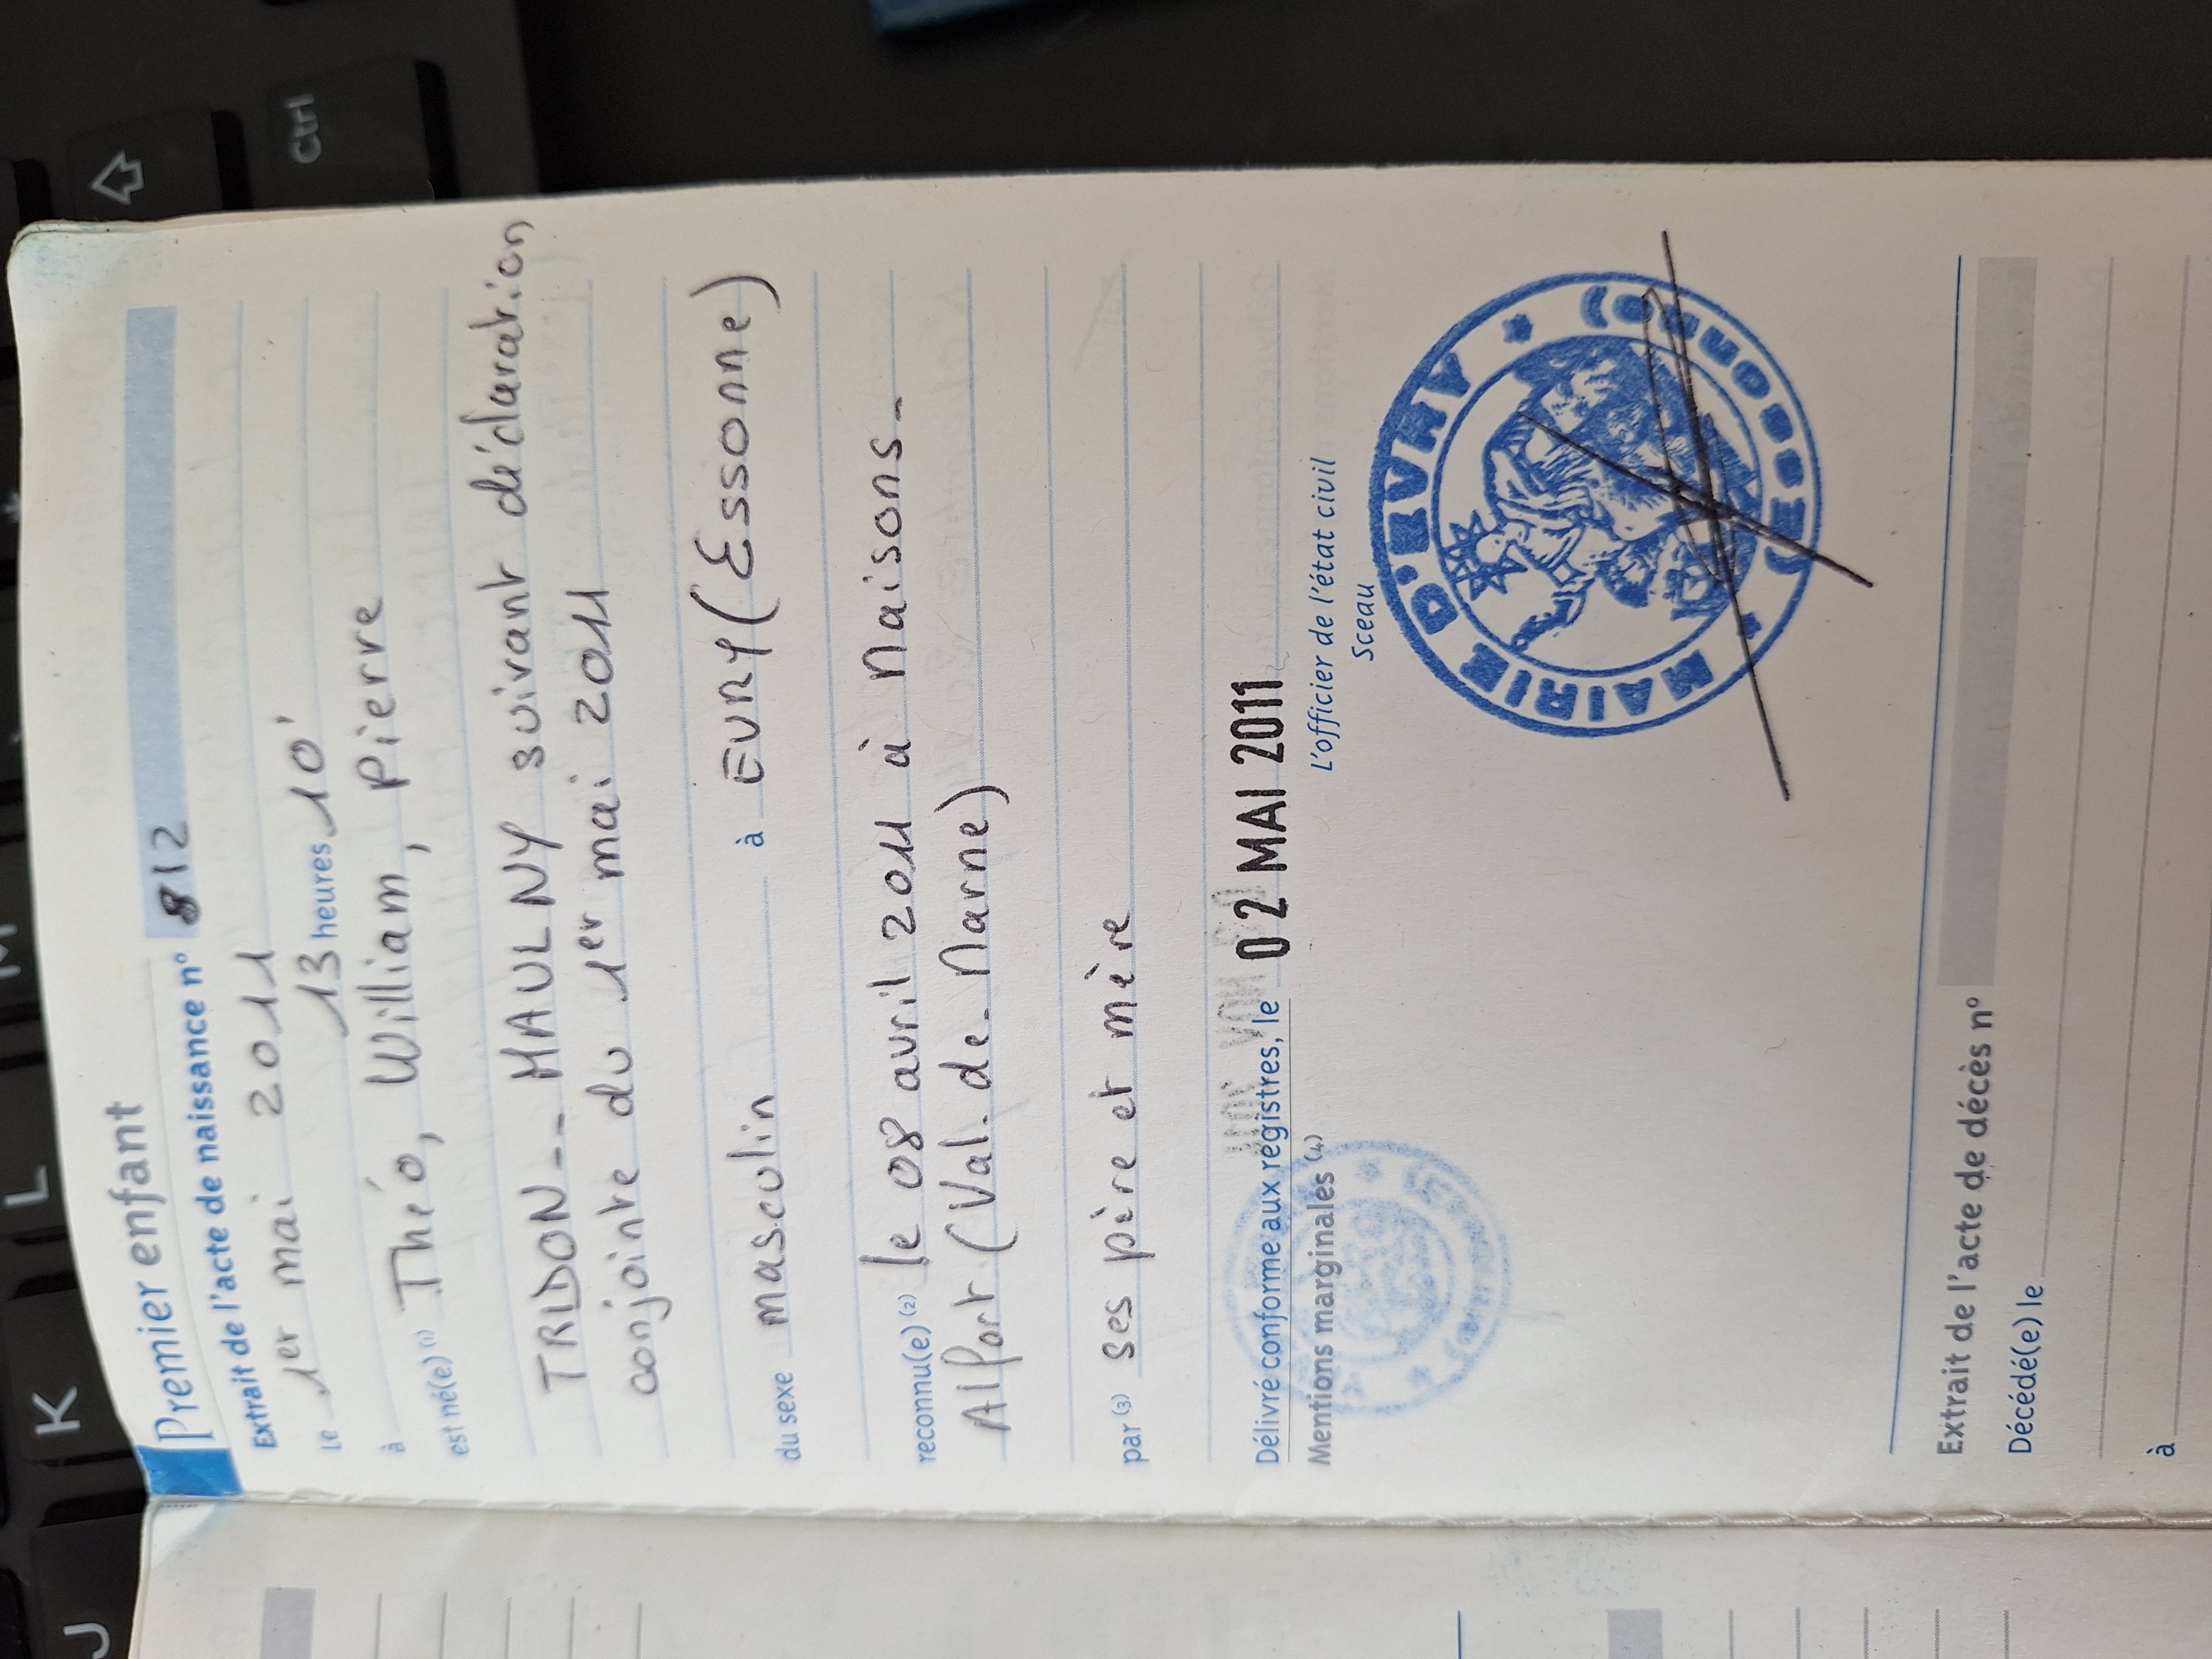 Premier enfant
Extrait de l'acte de naissance n° 812
le 1er mai 2011
à 13 heures 10'
est né(e) (1) Théo, William, Pierre
TRIDON -- MAULNY suivant déclaration
conjointe du 1er mai 2011
du sexe masculin à EVRY (Essonne)
reconnu(e) (2) le 08 avril 2011 à Maisons-
Alfort (Val-de-Marne)
par (3) ses père et mère
Délivré conforme aux registres, le 02 MAI 2011
Mentions marginales (4)
L'officier de l'état civil
Sceau
MAIRIE D'EVRY * (Essonne) *
Extrait de l'acte de décès n°
Décédé(e) le
à
Ctrl
J
K
L
M